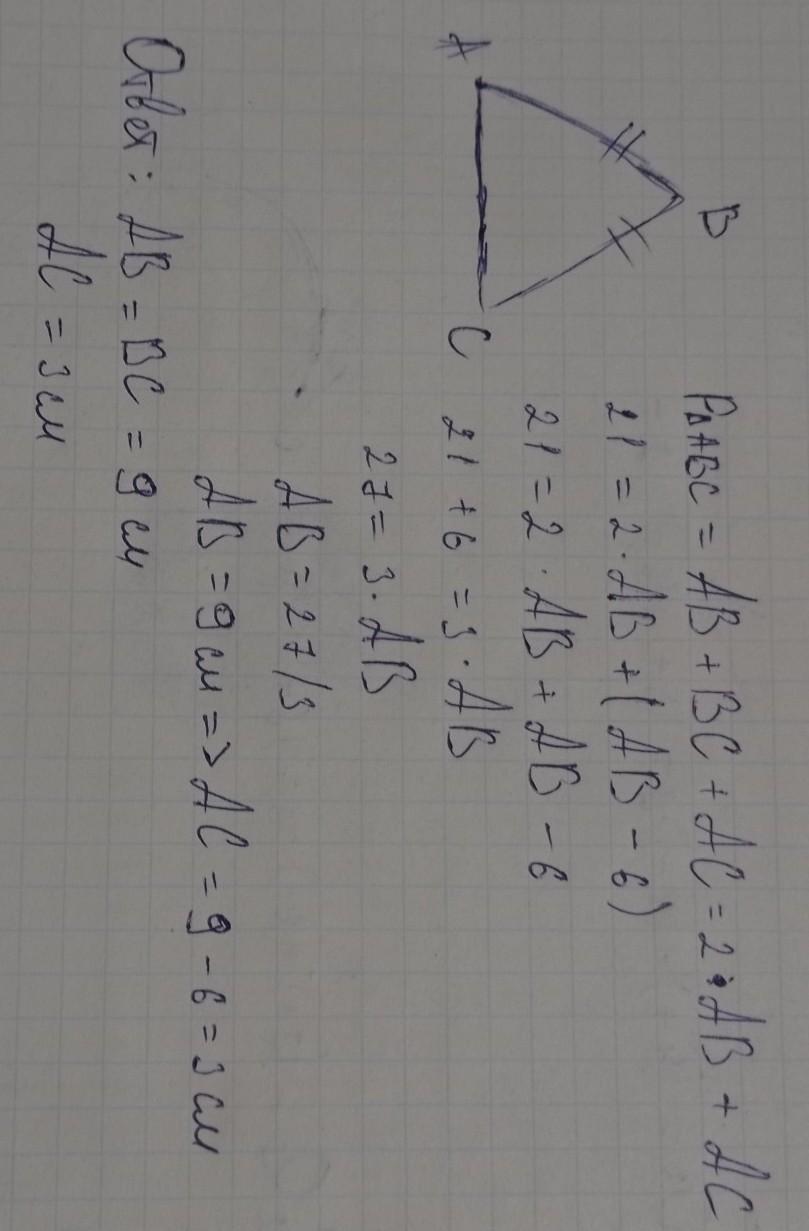 B
A
C
P∆ABC = AB + BC + AC = 2·AB + AC
21 = 2·AB + (AB - 6)
21 = 2·AB + AB - 6
21 + 6 = 3·AB
27 = 3·AB
AB = 27/3
AB = 9 см => AC = 9 - 6 = 3 см
Ответ: AB = BC = 9 см
AC = 3 см